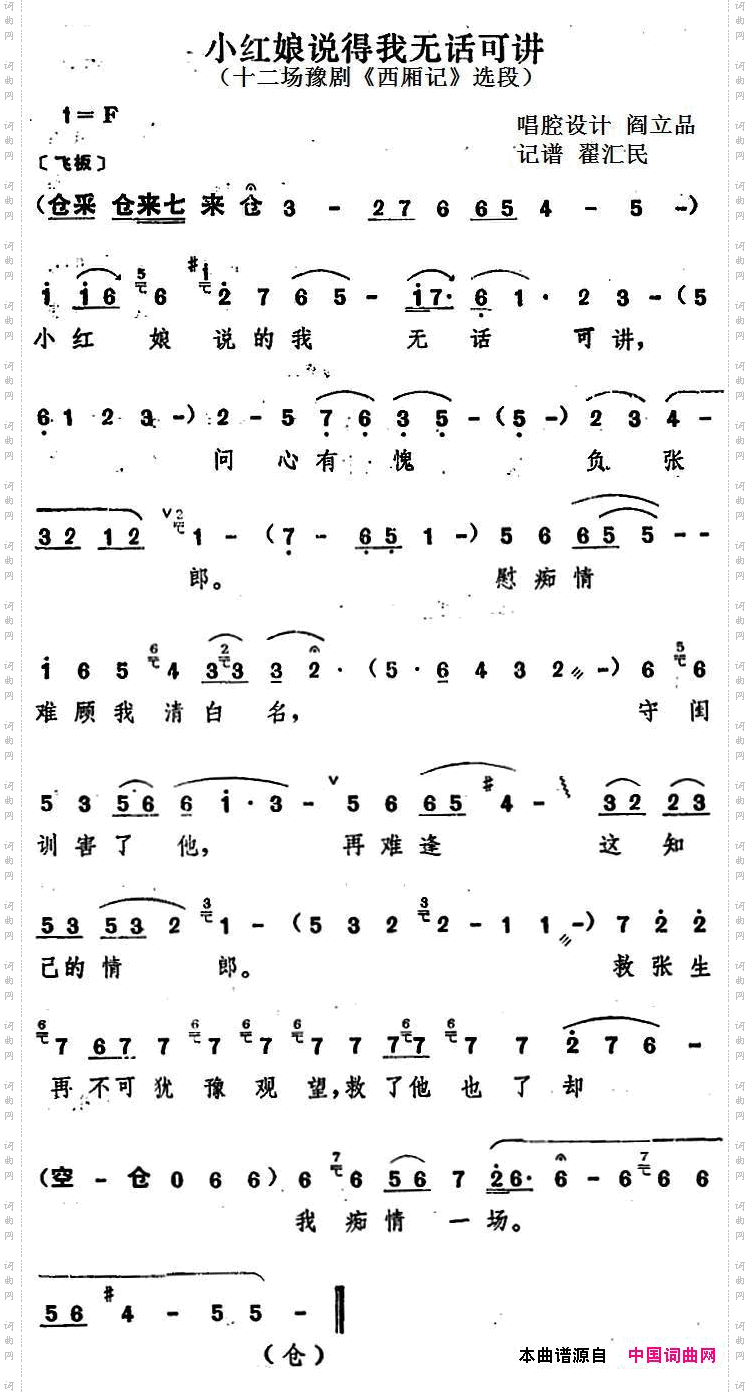 小红娘说得我无话可讲
（十二场豫剧《西厢记》选段）
1=F
唱腔设计 阎立品
〔飞板〕
记谱 翟汇民
（仓采 仓来七 来 仓 3 - 2 7 6 6 5 4 - 5 -）
i i 6 5 6 #i 2 7 6 5 - i 7· 6 1· 2 3 -（5
小红 娘 说的我 无 话 可讲，
6 1 2 3 -）2 - 5 7 6 3 5 -（5 -）2 3 4 -
问 心有 愧 负 张
3 2 1 2 2 1 -（7 - 6 5 1 -）5 6 6 5 5 - -
郎。 慰痴情
i 6 5 6 4 2 3 3 3 2·（5·6 4 3 2 -）6 5 6
难顾我 清白 名， 守 闺
5 3 5 6 6 i·3 - 5 6 6 5 #4 - 3 2 2 3
训害了 他， 再难逢 这 知
5 3 5 3 2 3 1 -（5 3 2 3 2 - 1 1 -）7 2 2
己的 情 郎。 救张生
6 7 6 7 7 6 7 6 7 7 7 6 7 7 6 7 7 2 7 6 -
再 不可 犹 豫 观 望，救了他 也 了 却
（空 - 仓 0 6 6）6 7 6 5 6 7 2 6· 6 - 6 7 6 6
我 痴情 一 场。
5 6 #4 - 5 5 -
（仓）
本曲谱源自 中国词曲网